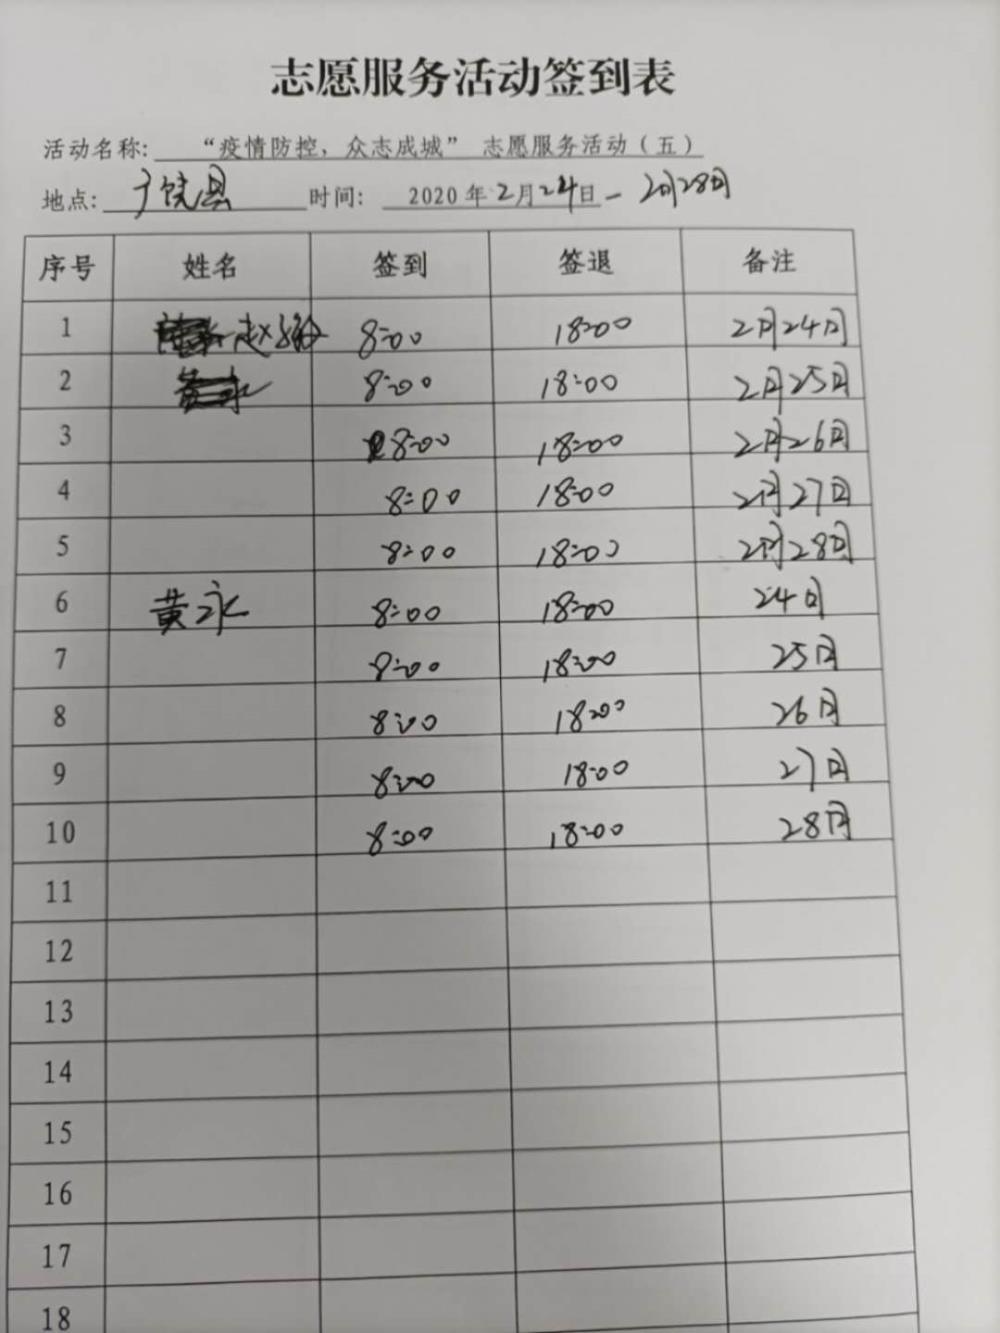 志愿服务活动签到表
活动名称: “疫情防控，众志成城” 志愿服务活动（五）
地点: 广饶县 时间: 2020 年 2月24日 — 2月28日
序号 姓名 签到 签退 备注
1 赵 8:00 18:00 2月24日
2 8:00 18:00 2月25日
3 8:00 18:00 2月26日
4 8:00 18:00 2月27日
5 8:00 18:00 2月28日
6 黄永 8:00 18:00 24日
7 8:00 18:00 25日
8 8:00 18:00 26日
9 8:00 18:00 27日
10 8:00 18:00 28日
11
12
13
14
15
16
17
18